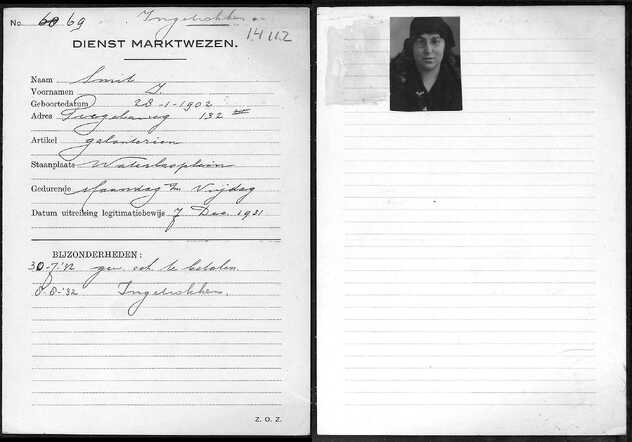 No. 60 69 Ingetrokken
14112
DIENST MARKTWEZEN.
Naam Smit
Voornamen J.
Geboortedatum 28-1-1902
Adres 132 III
Artikel galanterien
Staanplaats Waterlooplein
Gedurende Maandag t/m Vrijdag
Datum uitreiking legitimatiebewijs 7 Dec. 1931
BIJZONDERHEDEN:
30-7-'32 gew. ook te betalen.
8-8-'32. Ingetrokken.
Z. O. Z.